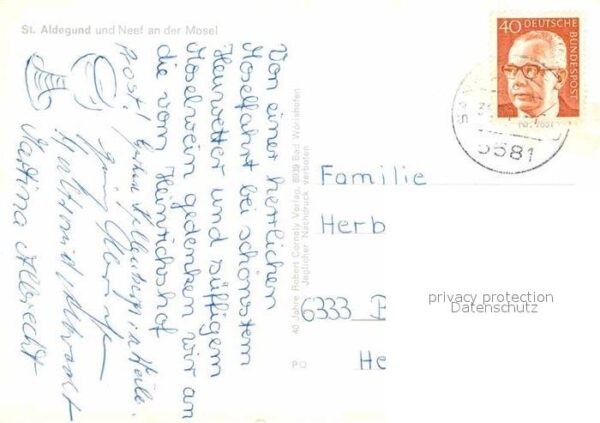 St. Aldegund und Neef an der Mosel
Von einer herrlichen
Moselfahrt bei schönstem
Heuwetter und süffigem
Moselwein gedenken wir an
die vom Heinrichshof
Prost!
Martina Albrecht
40 Jahre Robert Cornely Verlag, 8939 Bad Wörishofen
Jeglicher Nachdruck verboten
PQ
40
DEUTSCHE
BUNDESPOST
5581
Familie
Herb
6333
He
privacy protection
Datenschutz